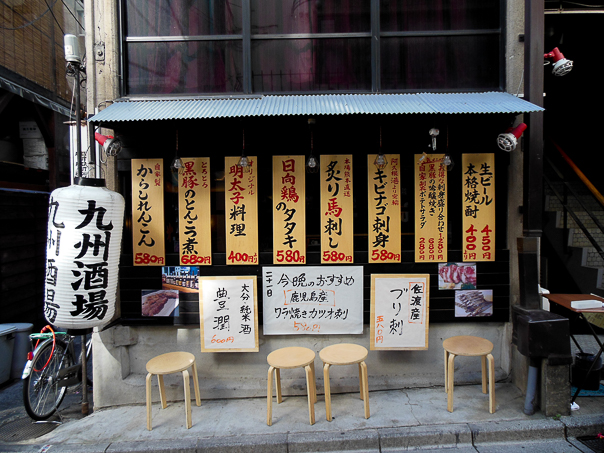 九州酒場
自家製
からしれんこん
580円
とろとろ
黒豚のとんこつ煮
680円
オリジナル
明太子料理
400円
日向鶏のタタキ
580円
本格熊本直送
炙り馬刺し
580円
キビナゴ刺身
400円
生ビール 450円
本格焼酎 400円
大分 純米酒
豊潤
600円
二十一日
今晩のおすすめ
鹿児島産
ワラ焼きカツオ刺
佐渡産
ブリ刺